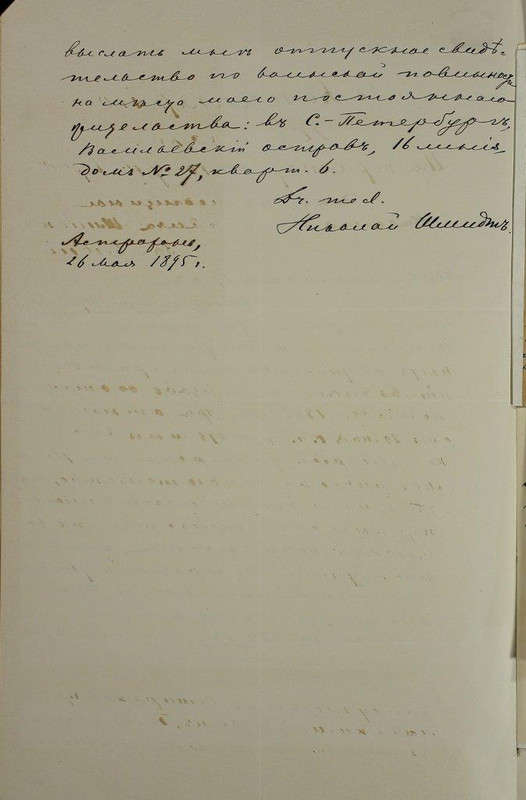 выслать мнѣ отпускное свидѣ-
тельство по воинской повинности
на мѣсто моего постояннаго
жительства: въ С.-Петербургъ,
Васильевскій островъ, 16 линія,
домъ № 27, кварт. 6.
Dr. med.
Николай Шмидтъ.
26 мая 1895 г.